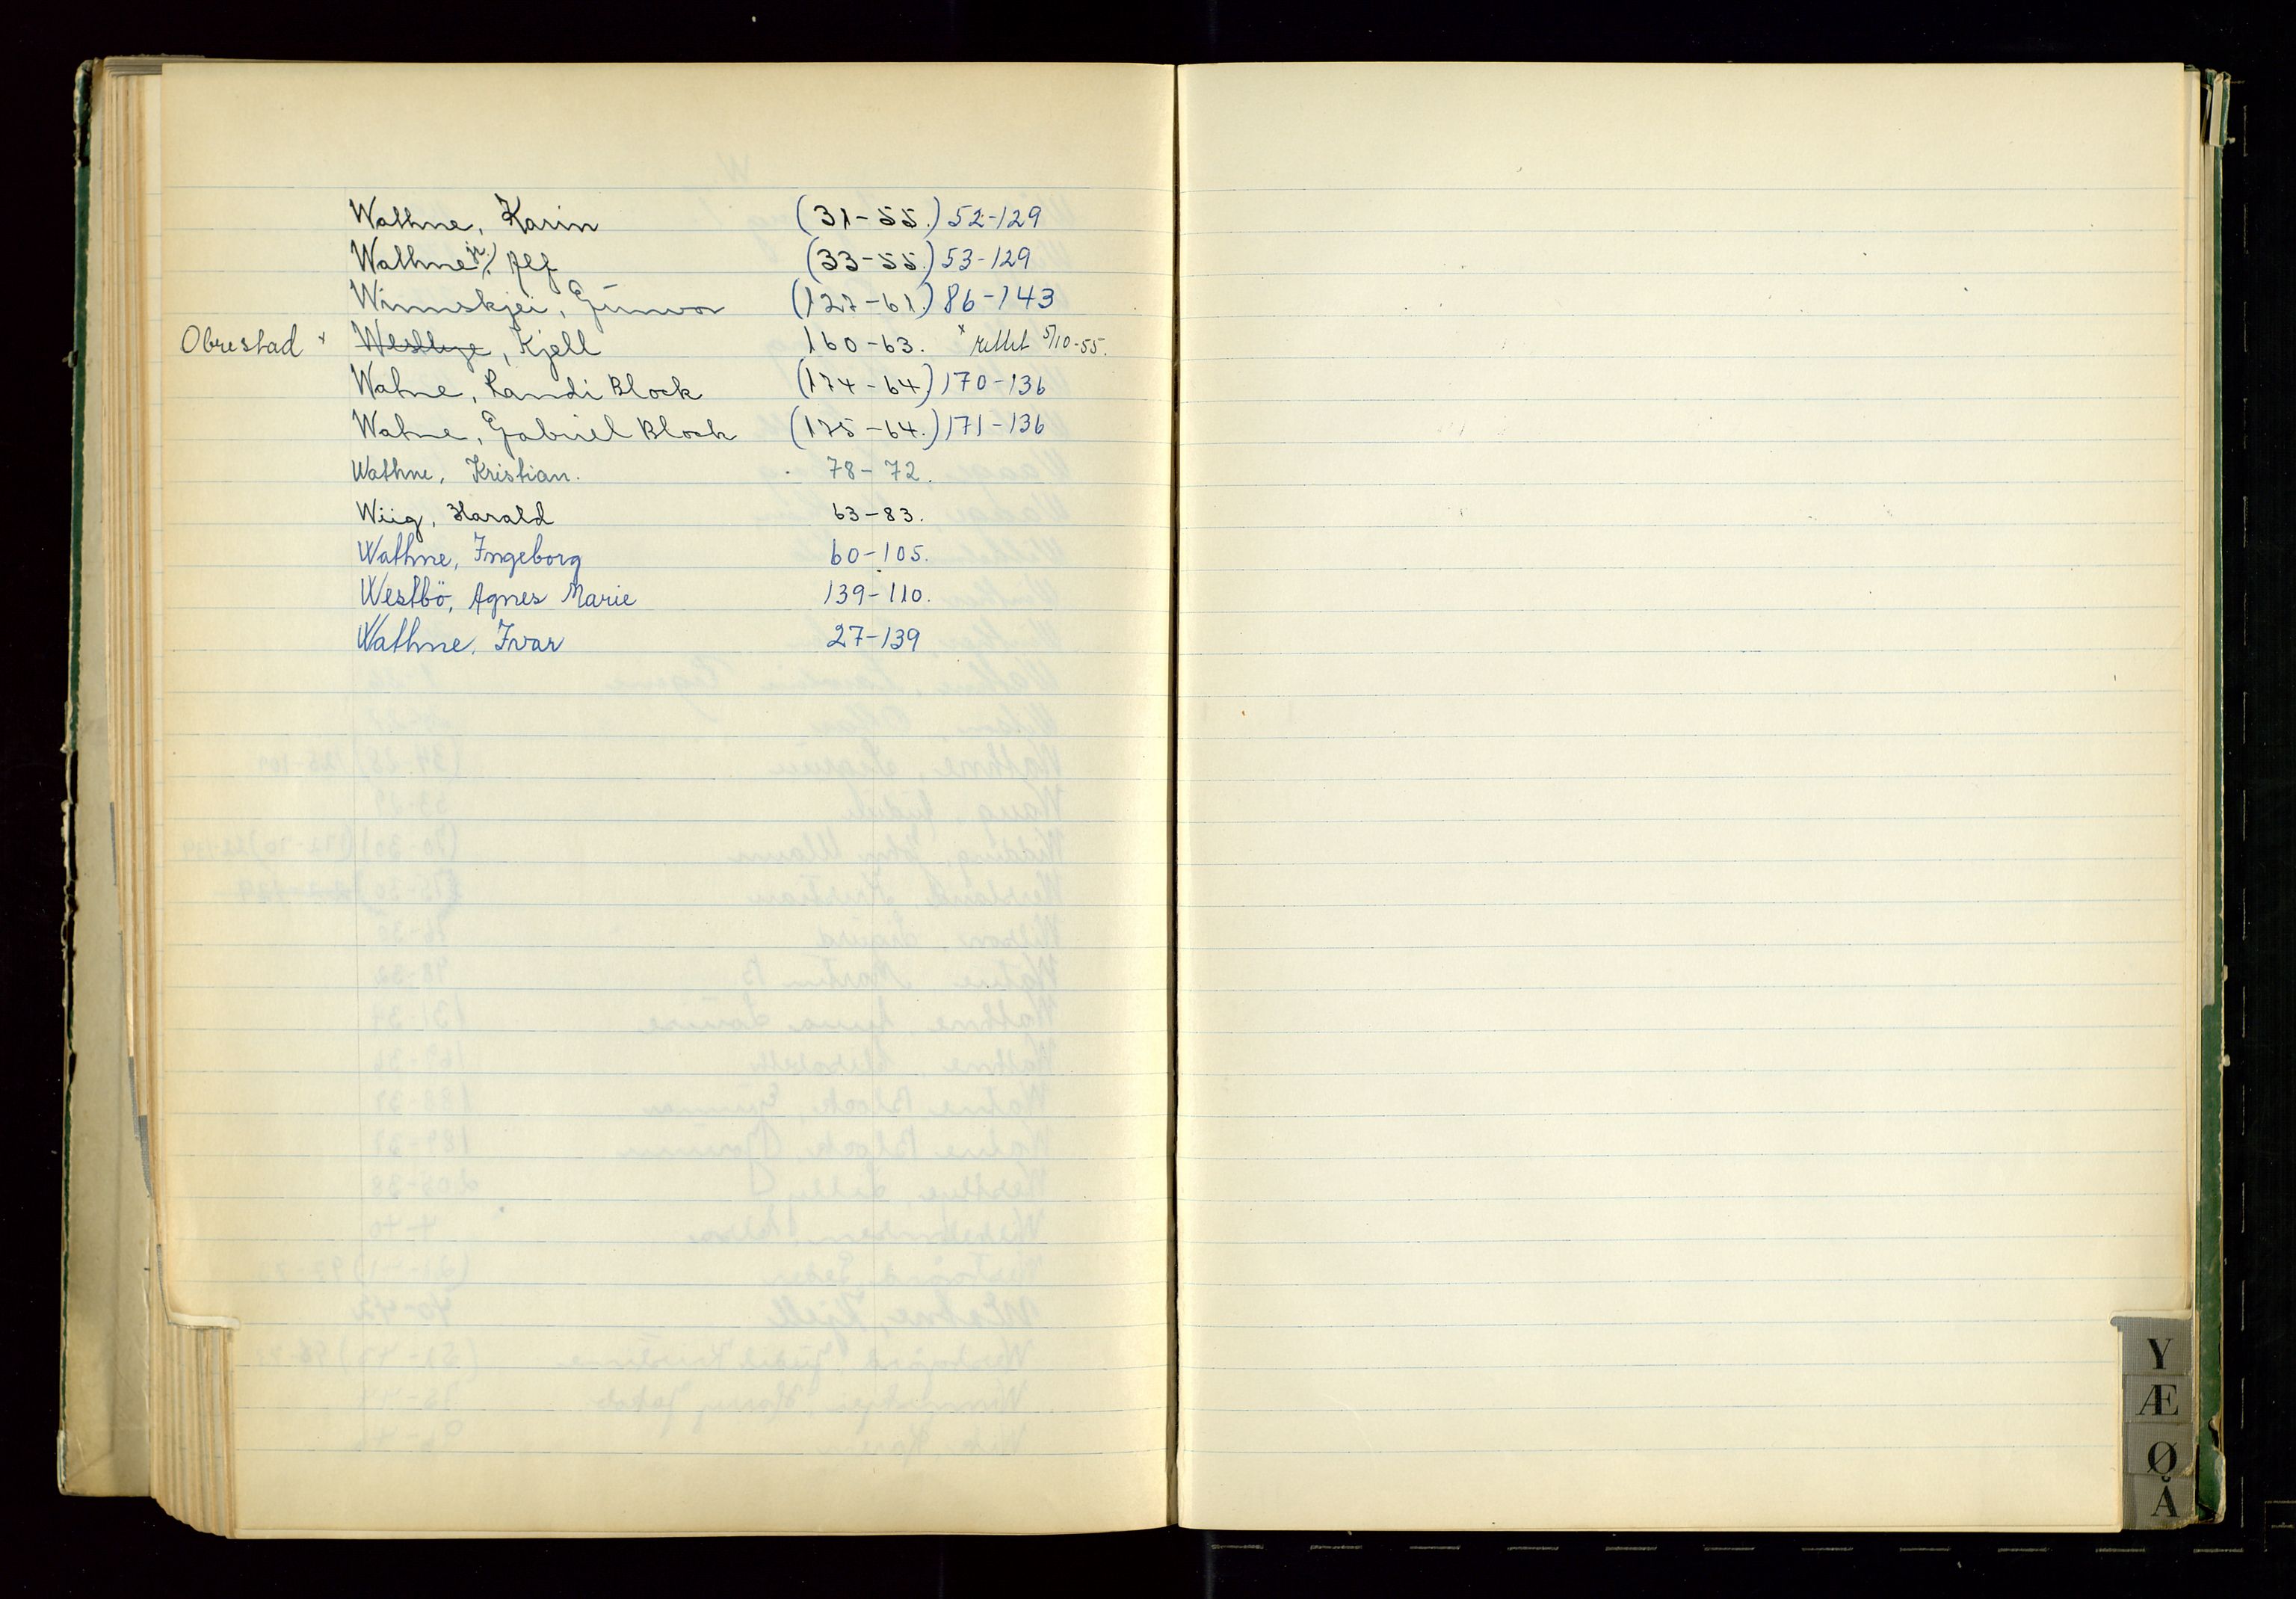 Wathne, Karin (31-55.) 52-129
Wathne jr., Alf (33-55.) 53-129
Wimskjei, Gunvor (127-61.) 86-143
Obrestad x Westlye, Kjell 160-63. x rettet 5/10-55.
Watne, Randi Block (174-64) 170-136
Watne, Gabriel Block (175-64.) 171-136
Wathne, Kristian. 78-72.
Wiig, Harald 63-83.
Wathne, Ingeborg 60-105.
Westbö, Agnes Marie 139-110.
Wathne, Ivar 27-139
Y
Æ
Ø
Å